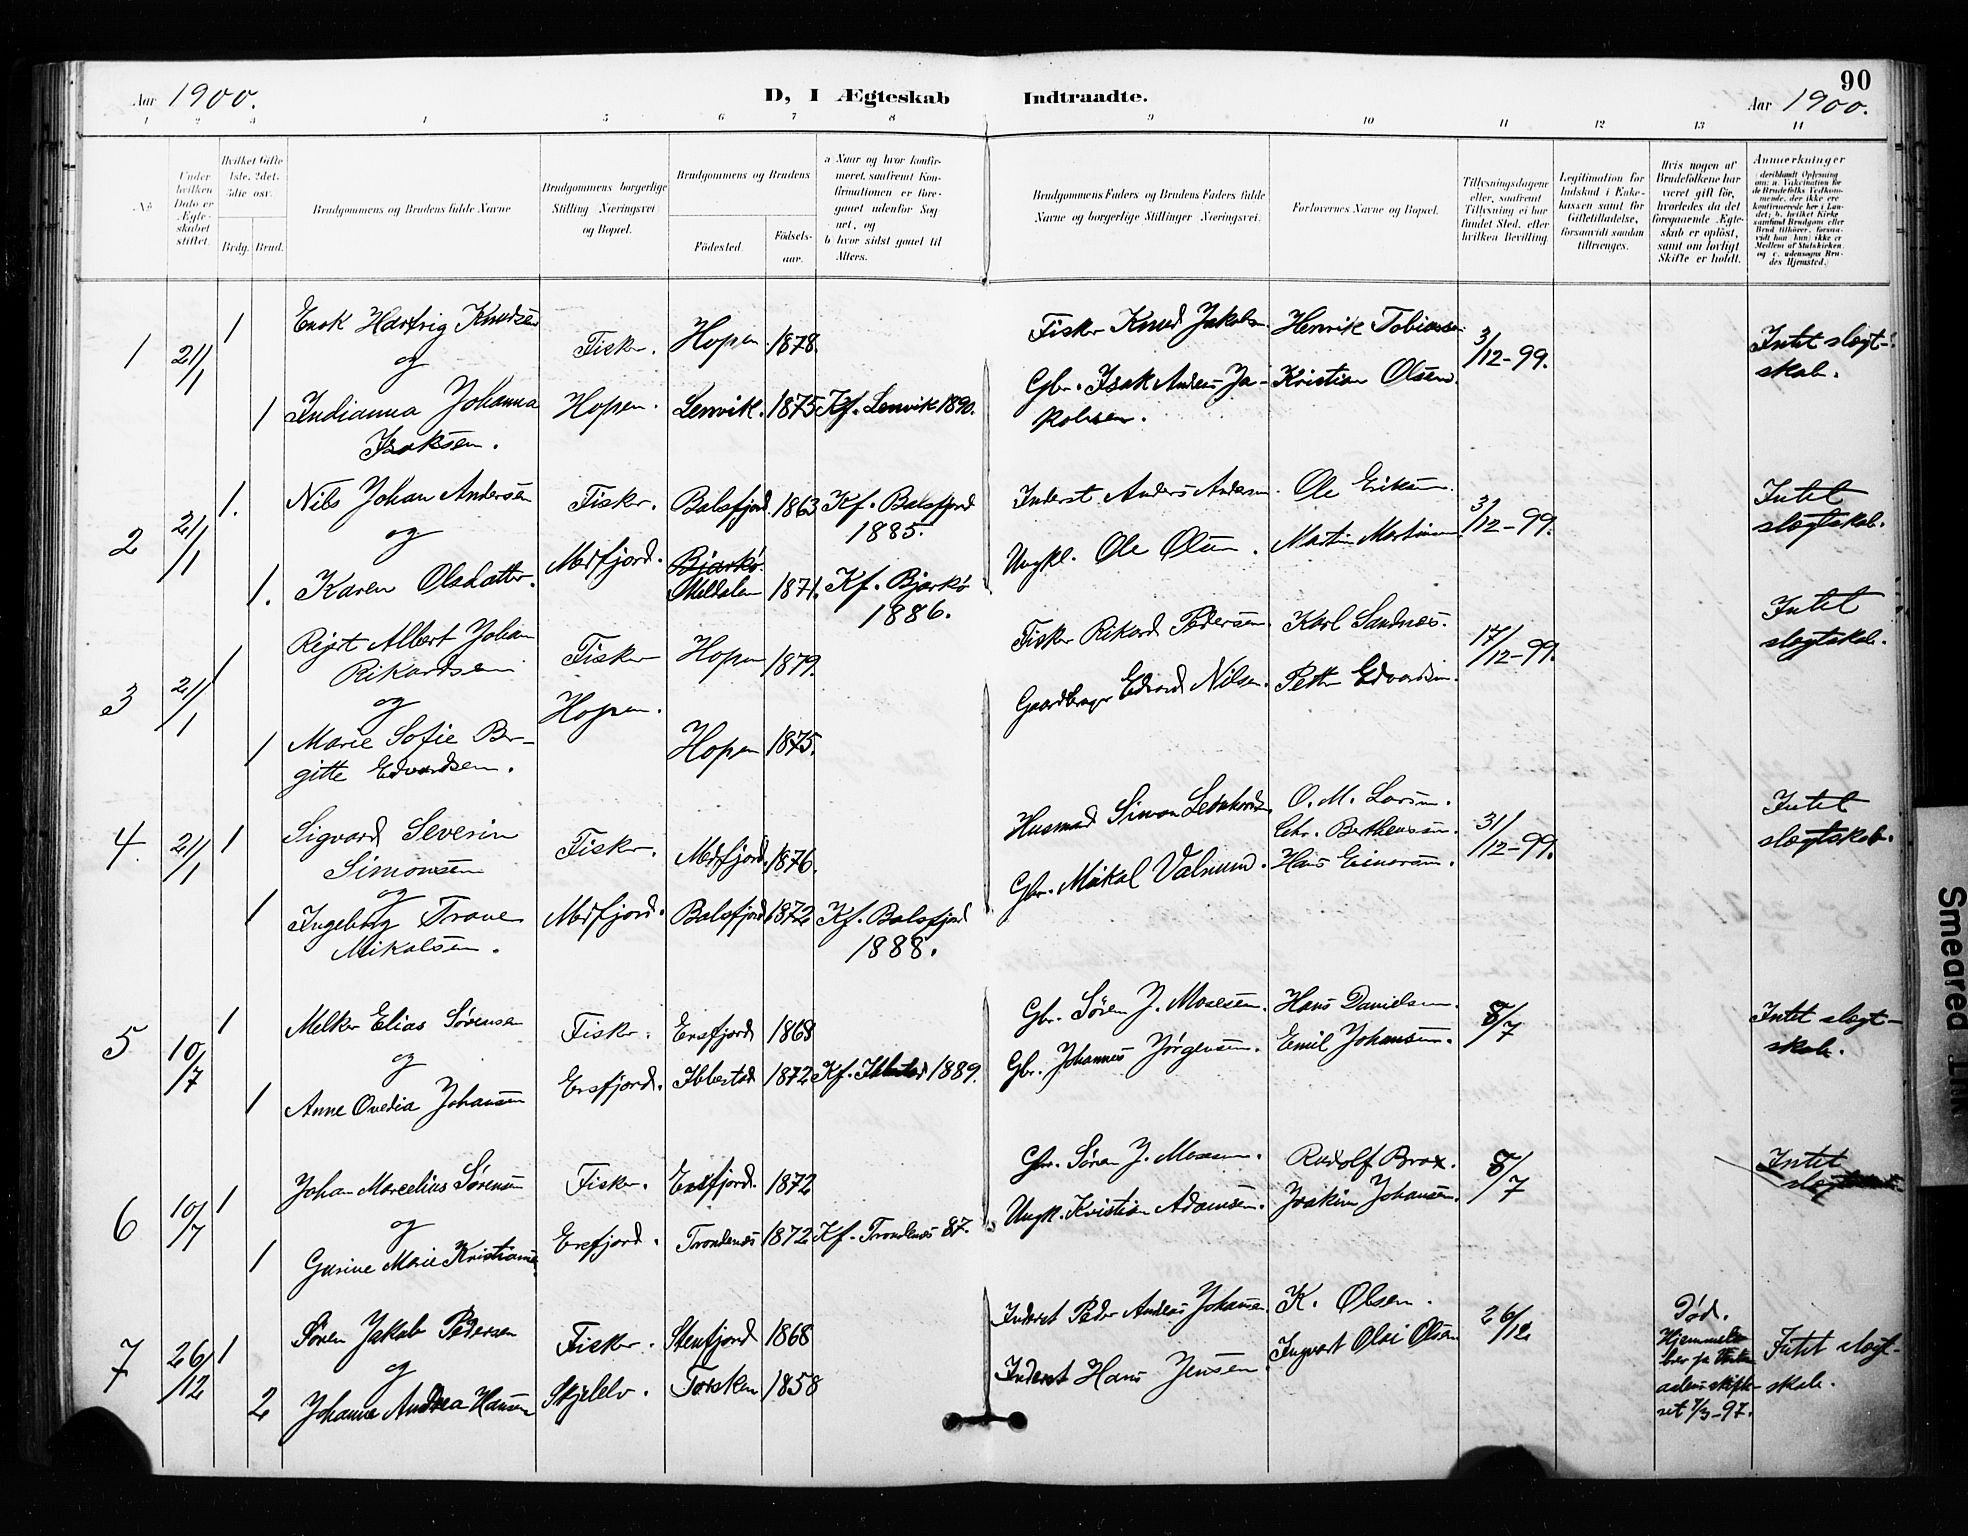 90
Aar 1900.
D, I Ægteskab Indtraadte.
Aar 1900.
1 2 3 4 5 6 7 8 9 10 11 12 13 14
No.
Under hvilken Dato er Ægteskabet stiftet.
Hvilket Gifte 1ste, 2det, 3die osv.
Brdg. Brud.
Brudgommens og Brudens fulde Navne
Brudgommens borgerlige Stilling Næringsvei og Bopæl.
Brudgommens og Brudens
Födested.
Födselsaar.
a Naar og hvor konfirmeret, saafremt Konfirmationen er foregaaet udenfor Sognet, og
b hvor sidst gaaet til Alters.
Brudgommens Faders og Brudens Faders fulde Navne og borgerlige Stillinger Næringsvei.
Forlovernes Navne og Bopæl.
Tillysningsdagene eller, saafremt Tillysning ei har fundet Sted, efter hvilken Bevilling.
Legitimation for Indskud i Enkekassen samt for Giftetilladelse, forsaavidt saadan tiltrænges.
Hvis nogen af Brudefolkene har været gift för, hvorledes da det foregaaende Ægteskab er oplöst, samt om lovligt Skifte er holdt.
Anmerkninger
1 21/1 1 Enok Hartvig Knudsen
og
1 Indianna Johanna
Isaksen.
Fisker.
Hopen.
Hopen 1878.
Lenvik. 1875 Kf. Lenvik 1890.
Fisker Knud Jakobsen
Gbr. Isak Andreas Ja-
kobsen.
Henrik Tobiassen
Kristian Olsen.
3/12-99.
Intet slegt-
skab.
2 21/1 1. Nils Johan Andersen
og
1. Karen Olsdatter.
Fisker.
Mefjord.
Balsfjord. 1863 Kf. Balsfjord
1885.
Bjarkö
Meldalen 1871. Kf. Bjarkö
1886.
Inderst Anders Andersen.
Ungkl. Ole Olsen.
Ole Eriksen.
Martin Martinsen.
3/12-99.
Intet
slegtskab.
3 21/1 1 Albert Johan
Rikardsen
og
1 Marie Sofie Ber-
gitte Edvardsen.
Fisker
Hopen.
Hopen 1879.
Hopen 1875.
Fisker Rikard Pedersen.
Gaardbruger Edvard Nilsen.
Karl Sandnæs.
Petter Edvardsen.
17/12-99.
Intet
slegtskab.
4. 21/1 1 Sigvard Severin
Simonsen
og
1 Ingeborg Trane
Mikalsen.
Fisker.
Mefjord.
Mefjord. 1876.
Balsfjord 1872 Kf. Balsfjord
1888.
Husmand Simon
Gbr. Mikal Valnum.
O. M. Larsen.
Chr. Bertheussen.
Hans Einarsen.
31/12-99.
Intet
slegtskab.
5 10/7 1 Melker Elias Sörensen
og
1 Anne Ovedia Johansen
Fisker.
Ersfjord.
Ersfjord 1868
Ibbestad 1872 Kf. Ibbestad 1889.
Gbr. Sören J. Mosesen.
Gbr. Johannes Jörgensen.
Hans Danielsen.
Emil Johansen.
8/7
Intet slegt-
skab.
6 10/7 1 Johan Marcelius Sörensen
og
1 Gurine Marie Kristianse
Fisker.
Ersfjord.
Ersfjord. 1872
Trondenæs 1872 Kf. Trondenæs 87.
Gbr. Sören J. Mosesen.
Ungk. Kristian Adamsen.
Rudolf Brox.
Joakim Johansen.
8/7
Intet
7 26/12 1 Sören Jakob Pedersen
og
2 Johanne Andrea Hansen
Fisker.
Skjelelv.
Stenfjord 1868
Torsken 1858
Inderst Peder Andreas Johansen.
Inderst Hans Jensen
K. Olsen.
Ingvart Olai Olsen
26/12
Död.
Hjemmels-
brev fa
7/3-97.
Intet slegt-
skab.
Smeared Ink